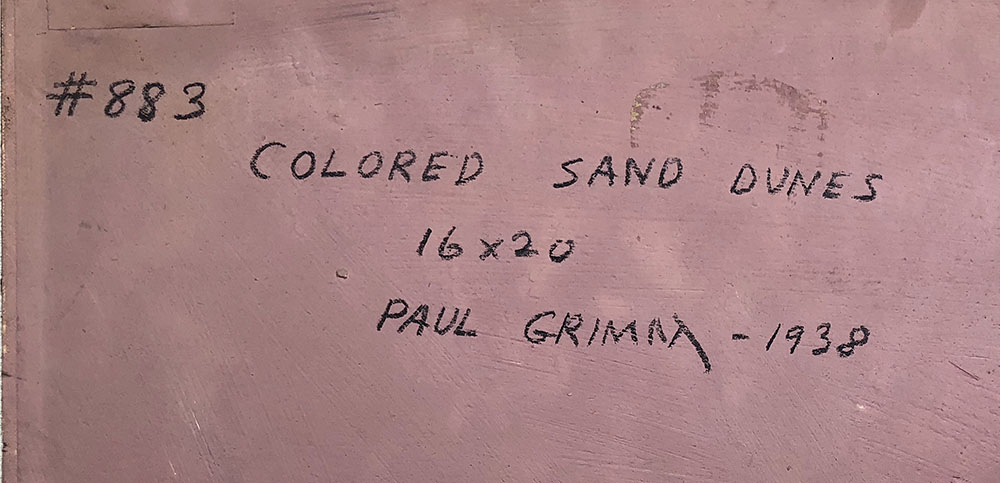 #883
COLORED SAND DUNES
16x20
PAUL GRIMM - 1938